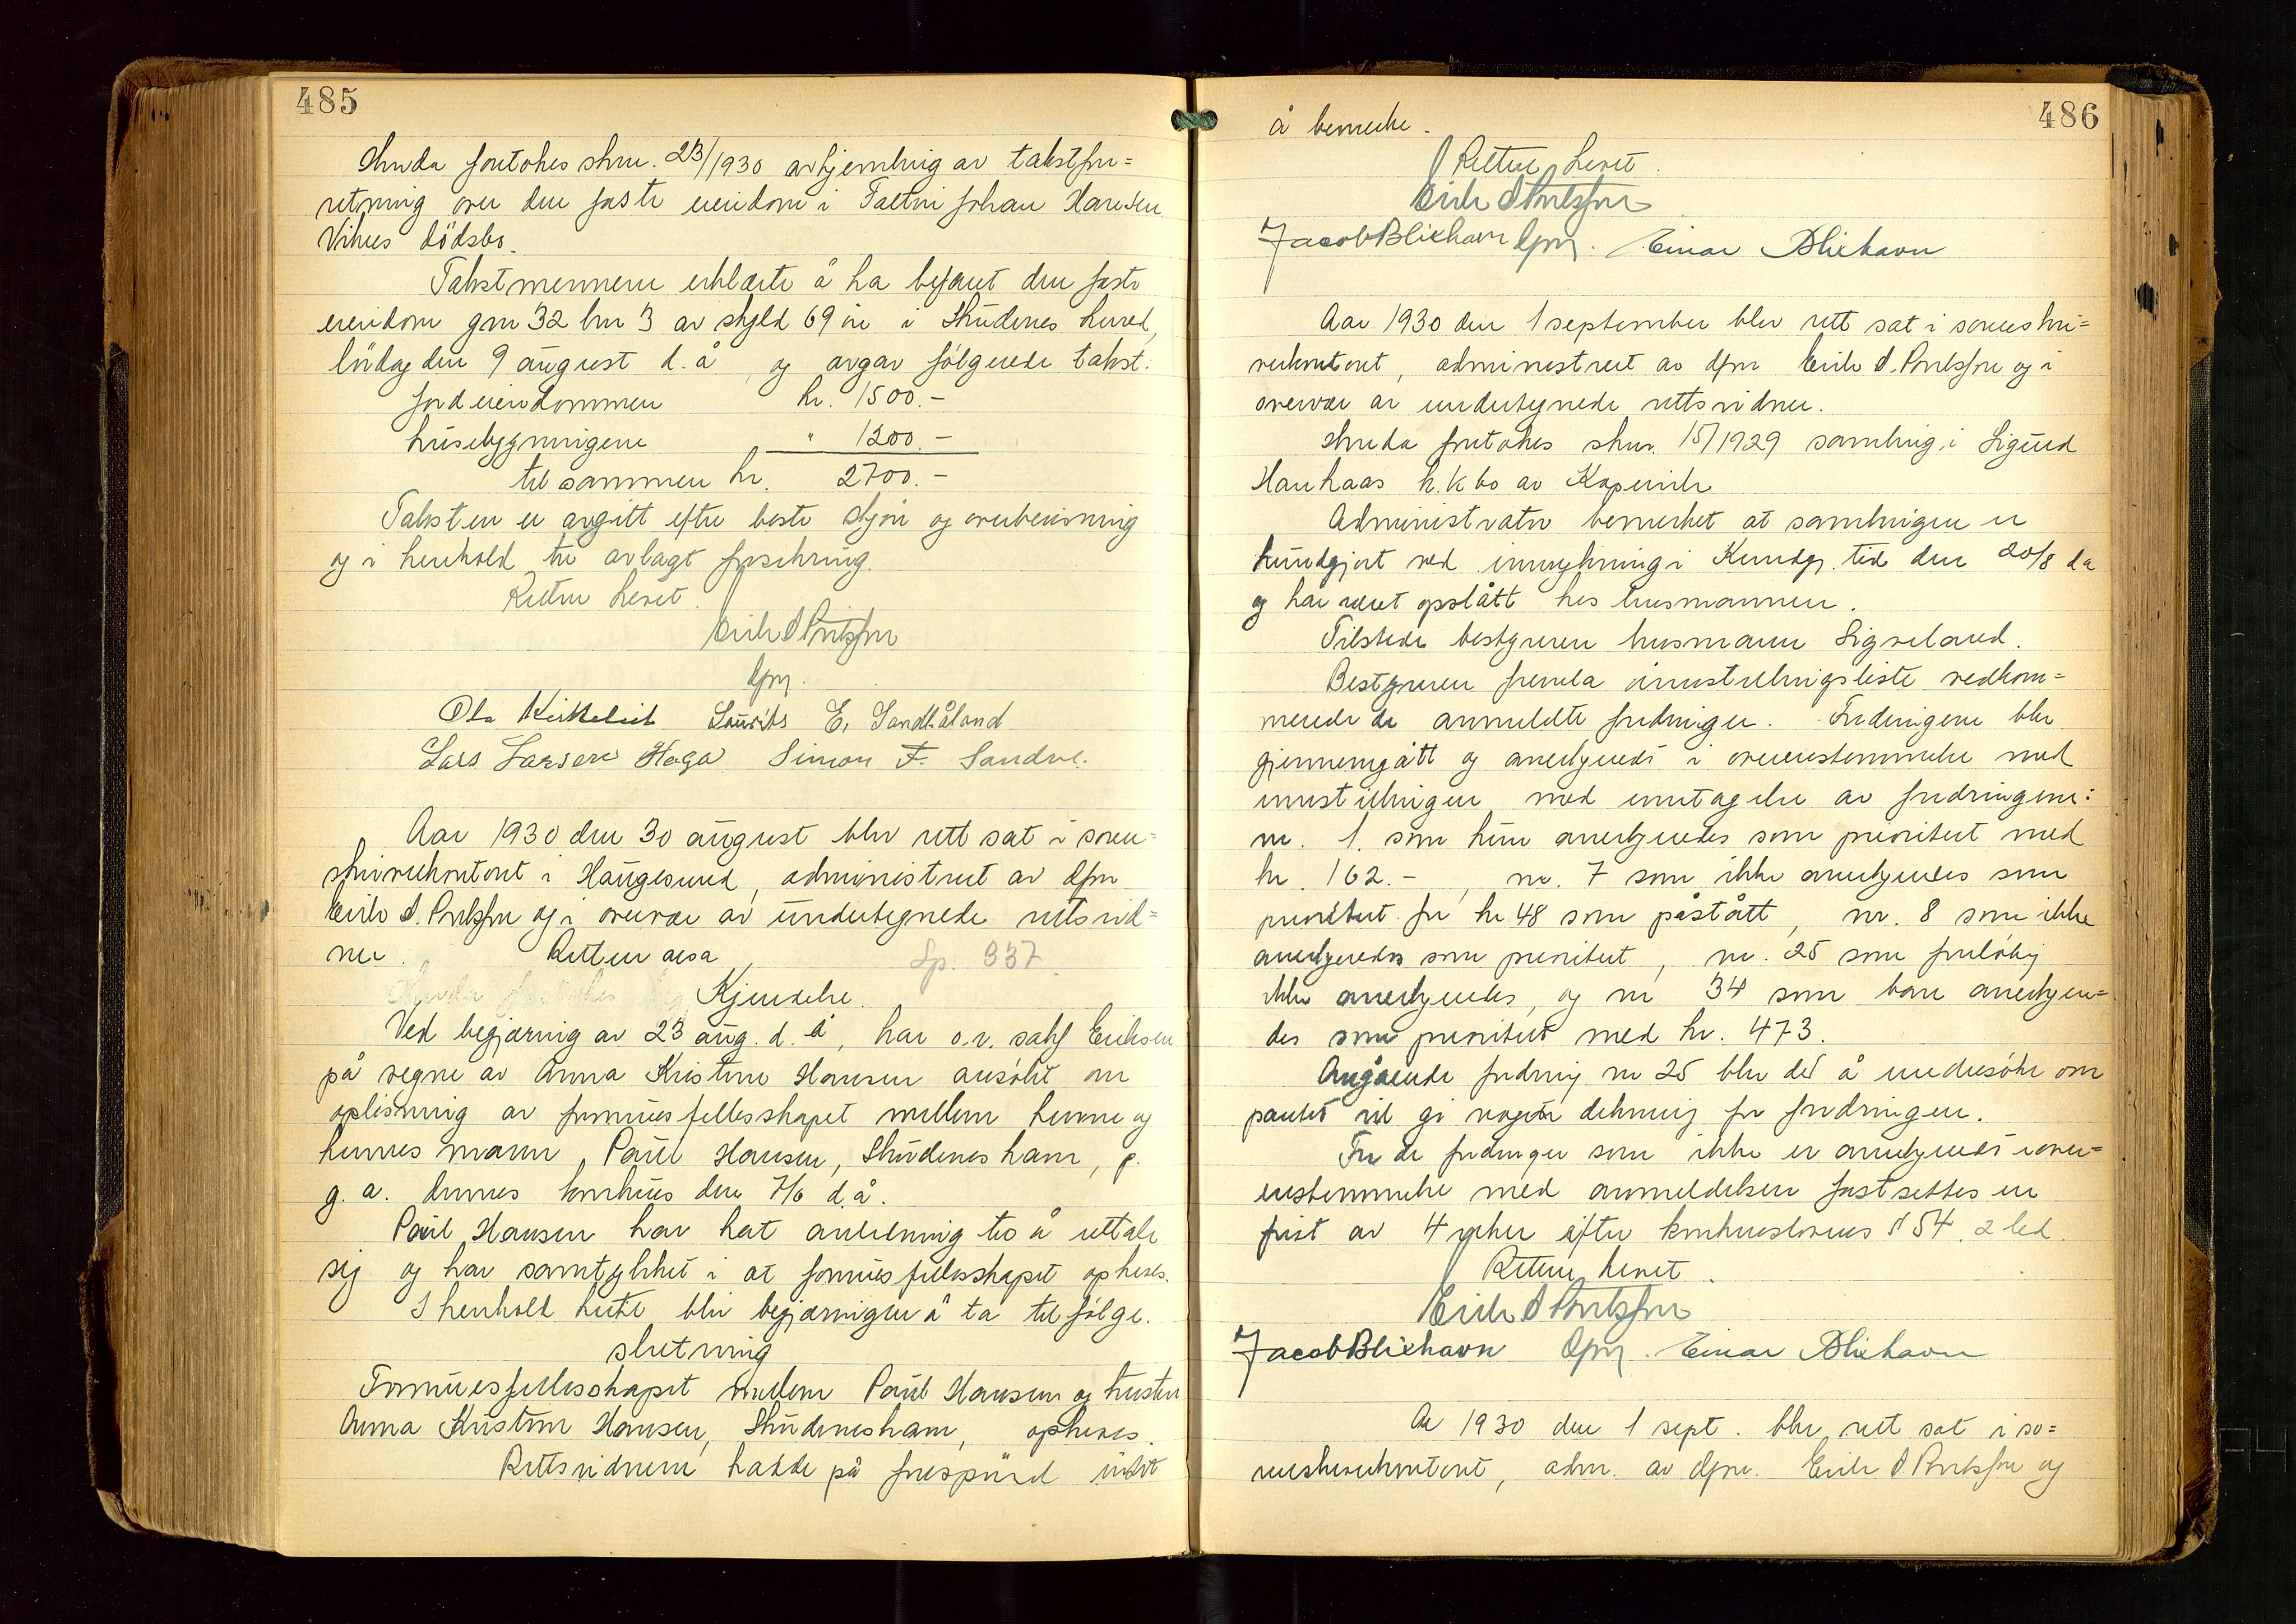 485
Herunda foretokes skrn. 23/1930 avhjemling av takstfor=
retning over den faste eiendom i Faetni Johan Hansen
Vikres dödsbo.
Takstmennene erklærte å ha befaret den faste
eiendom gnr 32 bnr 3 av skyld 69 öre i Skudenes herred,
lördag den 9 august d. å, og avgav fölgende takst:
jordeiendommen kr. 1500.-
husebygningene " 1200.-
tilsammen kr. 2700.-
Taksten er avgitt efter beste skjön og overbevisning
og i henhold til avlagt forsikring.
Retten hevet.
Eirik S Poulsson
dfm.
Ola Kirkeleit Laurits E. Sandhåland
Lars Larsen Haga Simon F. Sandve.
Aar 1930 den 30 august blev rett sat i soren=
skriverkontoret i Haugesund, administrert av dfm
Eirik S. Poulsson og i overvær av undertegnede rettsvid=
ner. Retten avsa Sp. 337
Kjennelse.
Ved begjæring av 23 aug. d. å, har o.r. sakf Eriksen
på vegne av Anna Kristine Hansen ansökt om
oplösning av formuesfellesskapet mellem henne og
hennes mann, Paul Hansen, Skudeneshavn, p.
g. a. dennes konkurs den 7/6 d.å.
Paul Hansen har hat anledning til å uttale
sig og har samtykket i at formuesfellesskapet opheves.
I henhold hertil blir begjæringen å ta til fölge.
slutning
Formuesfellesskapet mellem Paul Hansen og hustru
Anna Kristine Hansen, Skudeneshavn, opheves.
Rettsvidnene hadde på forespörsel intet
486
å bemerke.
Retten hevet.
Eirik S Poulsson
Jacob Blixhavn dfm. Einar Blixhavn
Aar 1930 den 1 september blev rett sat i sorenskri=
verkontoret, administrert av dfm Eirik S. Poulsson og i
overvær av undertegnede rettsvidner.
Herunda foretokes skrn. 15/1929 samling i Sigurd
Hanhaas k.k bo av Kopervik
Administrator bemerket at samlingen er
kundgjort ved innrykning i Kundgj. tid den 20/8 da
og har været opslått hos lensmannen.
Tilstede bestyreren lensmann Sigveland.
Bestyreren fremla innstillingsliste vedkom=
mende de anmeldte fordringer. Fordringene blev
gjennemgått og anerkjendt i overensstemmelse med
innstillingen med unntagelse av fordringene:
nr. 1. som kun anerkjendes som prioritert med
kr. 162.-, nr. 7 som ikke anerkjendes som
prioritert for kr 48 som påstått, nr. 8 som ikke
anerkjendes som prioritert, nr. 25 som foreløbig
ikke anerkjendes, og nr 34 som bare anerkjen=
des som prioritert med kr. 473.
Angående fordring nr 25 blir det å undersöke om
pantet vil gi nogen dekning for fordringen.
For de fordringer som ikke er anerkjendt i over=
ensstemmelse med anmeldelsen fastsettes en
frist av 4 uker efter konkurslovens § 54, 2 led.
Retten hevet.
Eirik S Poulsson
Jacob Blixhavn dfm. Einar Blixhavn
År 1930 den 1 sept. blev rett sat i so=
renskriverkontoret, adm. av dfm. Eirik S Poulsson og